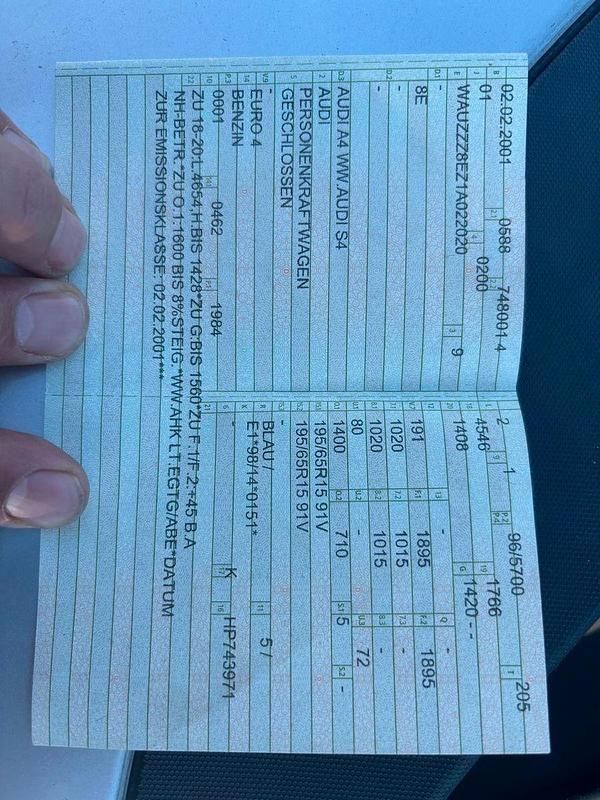 B 02.02.2001 2.1 0588 2.2 748001 4
J 01 4 0200
E WAUZZZ8EZ1A022020 3 9
D.1 -
8E
D.2 -
-
D.3 AUDI A4 WW.AUDI S4
2 AUDI
5 PERSONENKRAFTWAGEN
GESCHLOSSEN
V.9 -
14 EURO 4
P.3 BENZIN
10 0001 0462 1984
22 ZU 18-20:L.4654,H.BIS 1428*ZU G:BIS 1560*ZU F.1/F.2:+45 B.A
NH-BETR.*ZU O.1:1600 BIS 8%STEIG.*WW.AHK LT.EGTG/ABE*DATUM
ZUR EMISSIONSKLASSE: 02.02.2001***
L 2 9 1 P.2 P.4 96/5700 T 205
18 4546 19 1766
20 1408 G 1420--
12 - 13 - Q -
V.7 191 F.1 1895 F.2 1895
7.1 1020 7.2 1015 7.3 -
8.1 1020 8.2 1015 8.3 -
U.1 80 U.2 - U.3 72
O.1 1400 O.2 710 S.1 5 S.2 -
15.1 195/65R15 91V
15.2 195/65R15 91V
15.3 -
R BLAU / 11 5 /
K E1*98/14*0151*
6 - 17 K 16 HP743971
21